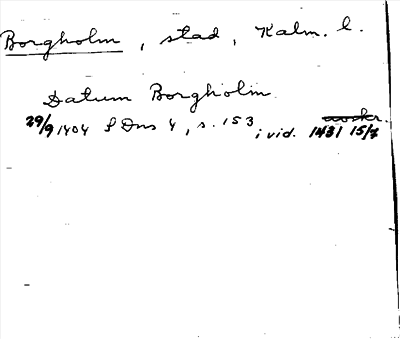 Borgholm, stad, Kalm. l.
Datum Borgholm
29/9 1404 SDns 4, s. 153; vid. 1431 15/7